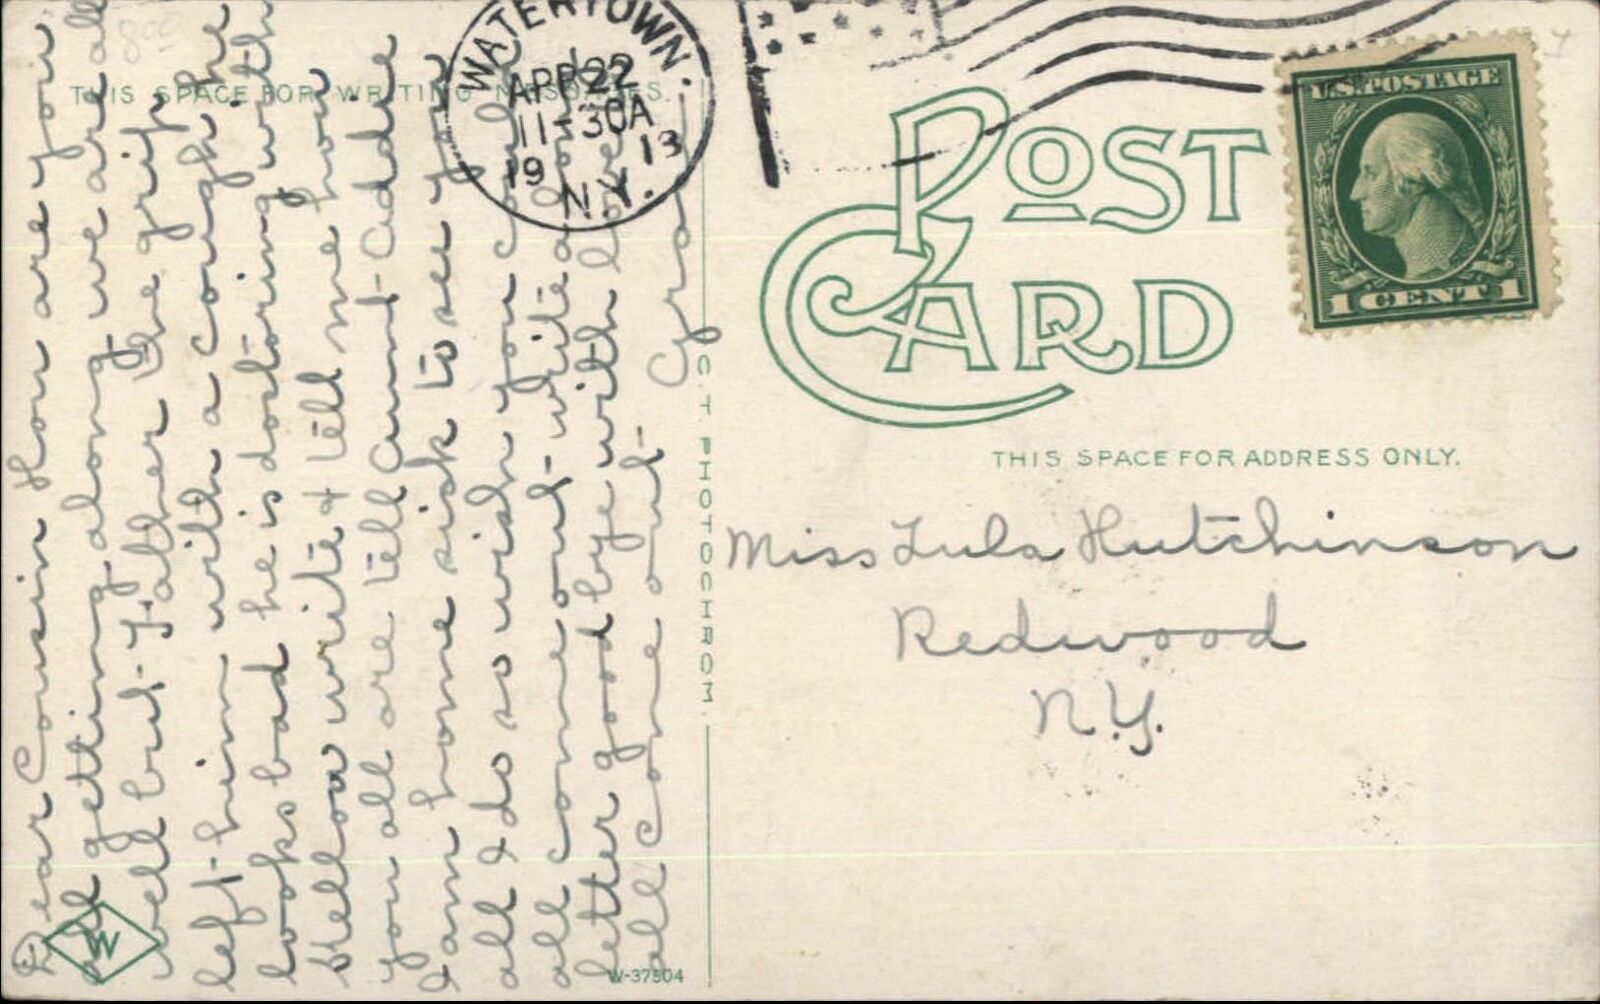 WATERTOWN.
APR 22
11-30A
19 13
N.Y.
U.S. POSTAGE
1 CENT 1
POST CARD
THIS SPACE FOR WRITING MESSAGES.
THIS SPACE FOR ADDRESS ONLY.
C.T. PHOTOCHROM.
Dear Cousin How are you
all getting along we are all
well but Father the grip
left him with a cough he
looks bad he is doctoring with
write & tell me how
you all are tell Aunt Addie
I am home sick to see you
all I do so wish you could
all come out write a long
letter good bye with love
all come out
Miss Lula Hutchinson
Redwood
N.Y.
W
W-37504